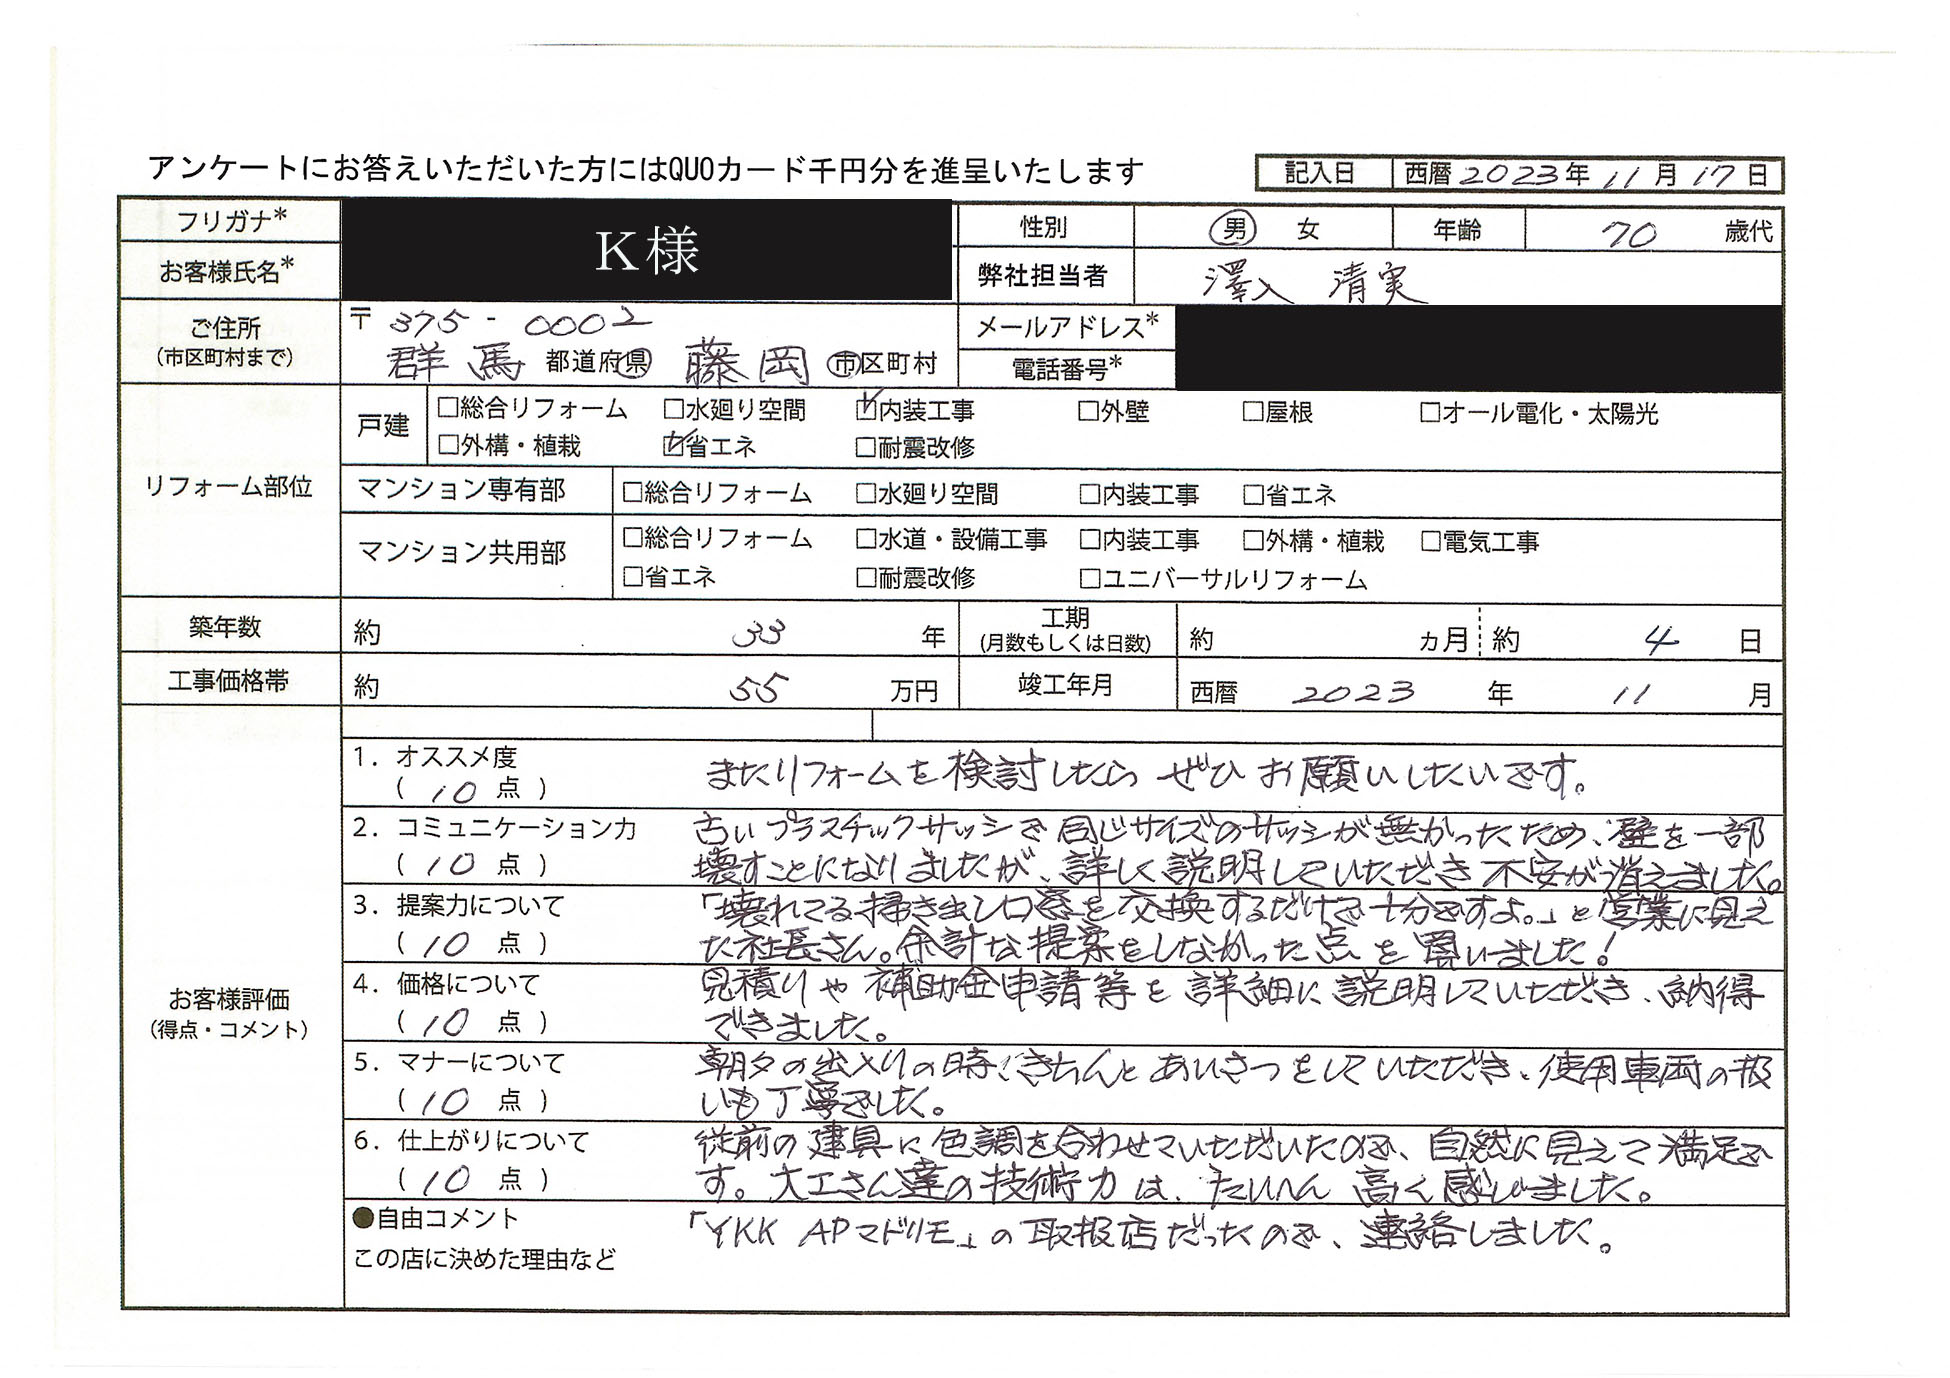 アンケートにお答えいただいた方にはQUOカード千円分を進呈いたします
記入日 西暦 2023年 11月 17日
フリガナ* K様 性別 男 女 年齢 70 歳代
お客様氏名* 弊社担当者 澤入 清実
ご住所 〒375-0002 メールアドレス*
(市区町村まで) 群馬 都道府県 藤岡 市区町村 電話番号*
リフォーム部位
戸建 □総合リフォーム □水廻り空間 ☑内装工事 □外壁 □屋根 □オール電化・太陽光
□外構・植栽 ☑省エネ □耐震改修
マンション専有部 □総合リフォーム □水廻り空間 □内装工事 □省エネ
マンション共用部 □総合リフォーム □水道・設備工事 □内装工事 □外構・植栽 □電気工事
□省エネ □耐震改修 □ユニバーサルリフォーム
築年数 約 33 年 工期 (月数もしくは日数) 約 ヵ月 約 4 日
工事価格帯 約 55 万円 竣工年月 西暦 2023 年 11 月
お客様評価
(得点・コメント)
1. オススメ度
( 10 点 ) またリフォームを検討したら ぜひ お願いしたいです。
2. コミュニケーション力 古いプラスチックサッシで同じサイズのサッシが無かったため、壁を一部
( 10 点 ) 壊すことになりましたが、詳しく説明していただき不安が消えました。
3. 提案力について 「壊れてる掃き出し口窓を交換するだけで十分ですよ。」と営業に見え
( 10 点 ) た社長さん。余計な提案をしなかった点を買いました!
4. 価格について 見積りや補助金申請等を詳細に説明していただき、納得
( 10 点 ) できました。
5. マナーについて 朝夕の出入りの時、きちんとあいさつをしていただき、使用車両の扱
( 10 点 ) いも丁寧でした。
6. 仕上がりについて 従前の建具に色調を合わせていただいたので、自然に見えて満足で
( 10 点 ) す。大工さん達の技術力は、たいへん高く感じました。
●自由コメント 「YKK APマドリモ」の取扱店だったので、連絡しました。
この店に決めた理由など